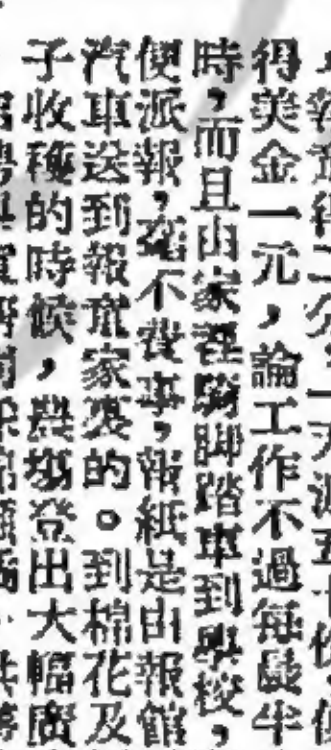 得美金一元，論工作不過每晨半
時，而且由家裡騎脚踏車到學校，
便派報，毫不費事，報紙是由報館
汽車送到報童家裏的。到棉花及
子收穫的時候，農塲登出大幅廣